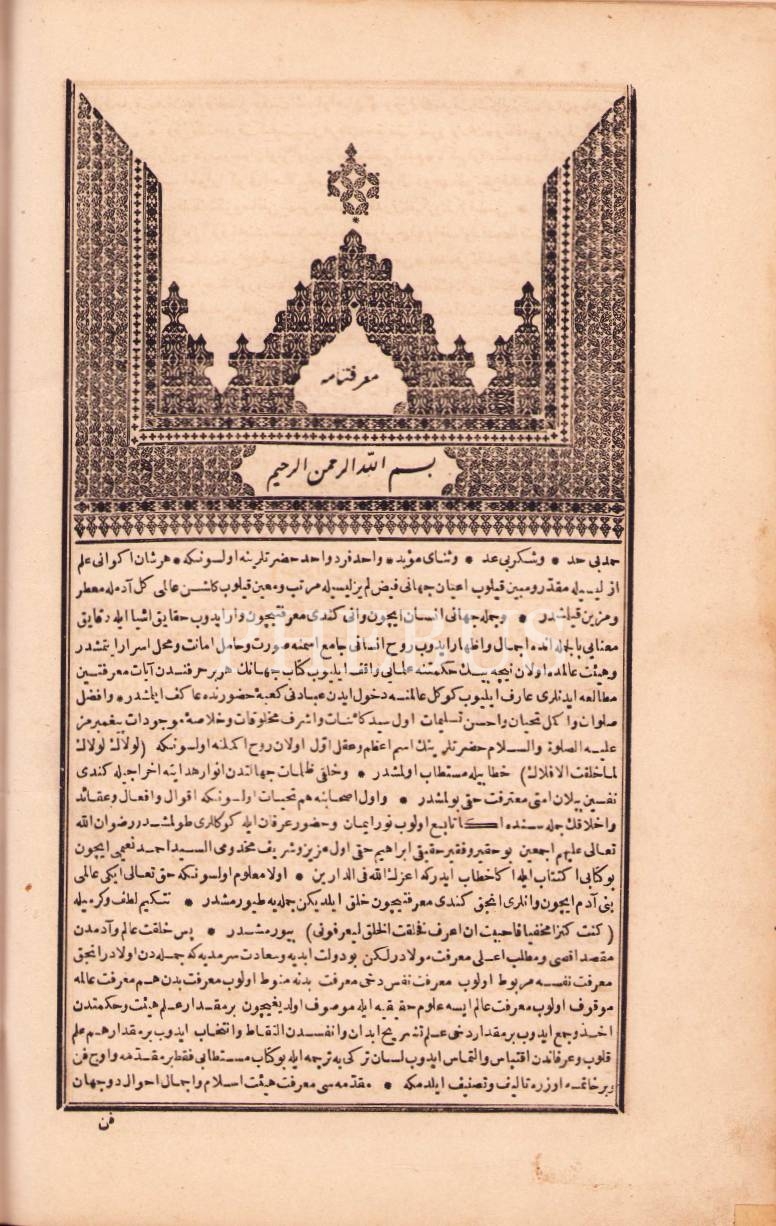 معرفتنامه
بسم الله الرحمن الرحيم
حمد بی حد * وشکر بی عد * وثنای مؤبد * واحد فرد واحد حضرتلرینه اولسونکه * هر شان اکوانی علم
ازلیسیله مقدر ومبین قیلوب اعیان جهانی فیض لم یزلیسیله مرتب ومعین قیلوب کلشن عالمی کل آدمله معطر
ومزین قیلمشدر * وجمله جهانی انسان ایچون وانی کندی معرفتیچون وار ایدوب حقایق اشیا ایله دقایق
معنایی بالجمله انده اجمال واظهار ایدوب روح انسانی جامع اسمنه صورت وحامل امانت ومحل اسرار ایتمشدر
وهیئت عالمده اولان نیجه بیك حکمتنه علمایی واقف ایلیوب کتاب جهانك هر بر حرفندن آیات معرفتین
مطالعه ایدنلری عارف ایلیوب کوکل عالمنه دخول ایدن عبادنی کعبۀ حضورنده عاکف ایلمشدر * وافضل
صلوات واکمل تحیات واحسن تسلیمات اول سید کائنات واشرف مخلوقات وخلاصۀ موجودات پیغمبرمز
علیه الصلوة والسلام حضرتلرینك اسم اعظم وعقل اول اولان روح اکملنه اولسونکه (لولاك لولاك
لما خلقت الافلاك) خطابیله مستطاب اولمشدر * وخلقی ظلمات جهالتدن انوار هدایته اخراجیله کندی
نفسین بیلان امتی معترفت حقی بولمشدر * واول اصحابنه هم تحیات اولسونکه اقوال وافعال وعقائد
واخلاقك جمله سنده اکا تابع اولوب نور ایمان وحضور عرفان ایله کوکللری طولمشدر رضوان الله
تعالی علیهم اجمعین بو حقیر وفقیر حقیقی ابراهیم حتی اول عزیز وشریف مخدومی السید احمد نعیمی ایچون
بو کتابی اکتتاب ایله اکا خطاب ایدر که اعزك الله فی الدارین * اولا معلوم اولسونکه حق تعالی ایکی عالمی
بنی آدم ایچون وانلری انجق کندی معرفتیچون خلق ایلدیکن جمله یه طیورمشدر * تتکیم لطف وکرمیله
(کنت کنزا مخفیا فاحببت ان اعرف فخلقت الخلق لیعرفونی) بیورمشدر * پس خلقت عالم وآدمدن
مقصد اقصی ومطلب اعلی معرفت مولادر لکن بو دولت ابدیه وسعادت سرمدیه که جمله دن اولادر انجق
معرفت نفسه مربوط اولوب معرفت نفس دخی معرفت بدنه منوط اولوب معرفت بدن هم معرفت عالمه
موقوف اولوب معرفت عالم ایسه علوم حقیقیه ایله موصوف اولدیغیچون بر مقدار علم هیئت وحکمتدن
اخذ وجمع ایدوب بر مقدار دخی علم تشریح ابدان وانفسدن التقاط وانتخاب ایدوب بر مقدار هم علم
قلوب وعرفاندن اقتباس والتماس ایدوب لسان ترکی یه ترجمه ایله بو کتاب مستطابی فقط بر مقدمه واوچ فن
وبر خاتمه اوزره تالیف وتصنیف ایلدمکه * مقدمه سی معرفت هیئت اسلام واجمال احوال دو جهان
فن